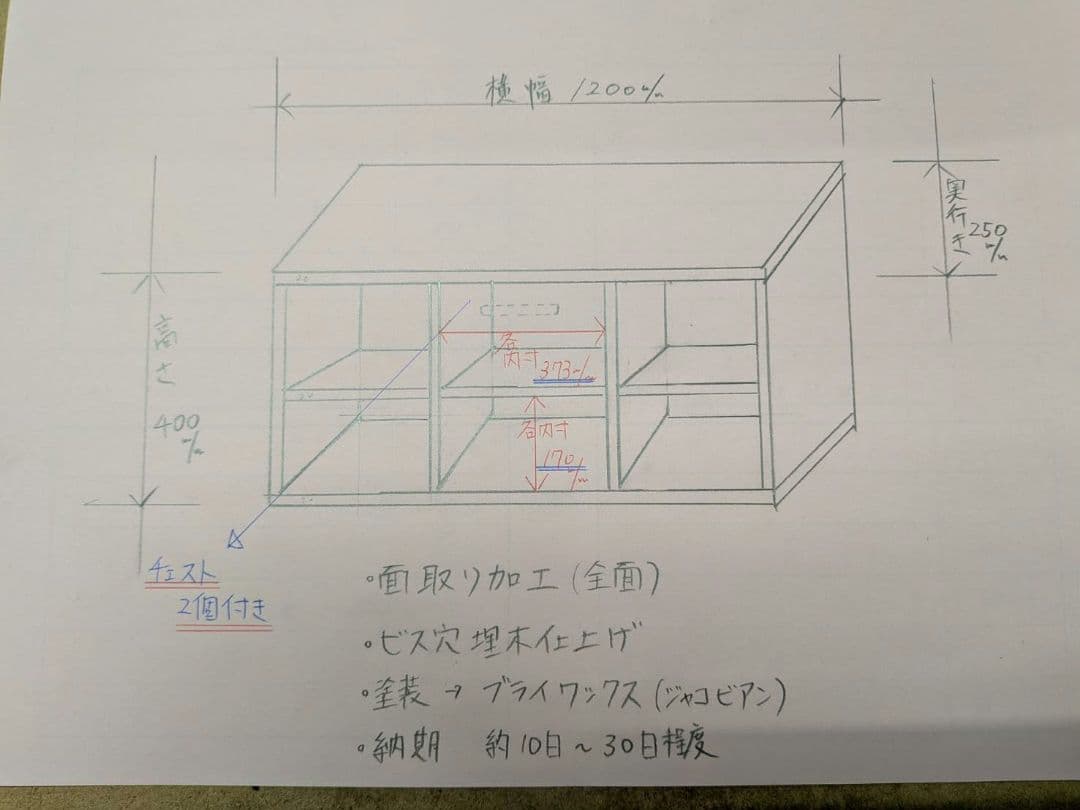 横幅 1200m/m
奥行き
250
m/m
高さ
400
m/m
20
各
内寸
373m/m
20
各内寸
170
m/m
チェスト
2個付き
・面取り加工(全面)
・ビス穴埋木仕上げ
・塗装→ブライワックス(ジャコビアン)
・納期 約10日～30日程度